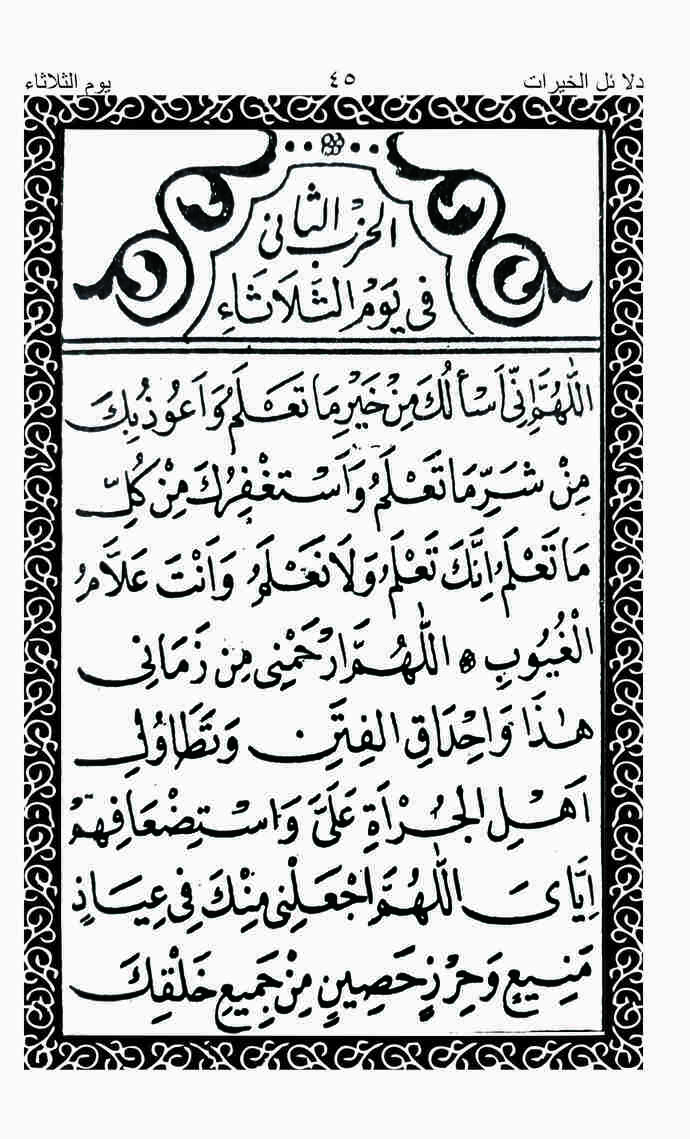 دلا ئل الخيرات ٤٥ يوم الثلاثاء
الحزب الثانى
فى يَوْمِ الثَّلَاثَاءِ
اَللّٰهُمَّ اِنِّى اَسْأَلُكَ مِنْ خَيْرِ مَا تَعْلَمُ وَاَعُوذُ بِكَ
مِنْ شَرِّ مَا تَعْلَمُ وَاَسْتَغْفِرُكَ مِنْ كُلِّ
مَا تَعْلَمُ اِنَّكَ تَعْلَمُ وَلَا نَعْلَمُ وَاَنْتَ عَلَّامُ
الْغُيُوبِ ۞ اَللّٰهُمَّ ارْحَمْنِى مِنْ زَمَانِى
هٰذَا وَاِحْدَاقِ الْفِتَنِ وَتَطَاوُلِ
اَهْلِ الْجُرْأَةِ عَلَىَّ وَاسْتِضْعَافِهِمْ
اِيَّاىَ اَللّٰهُمَّ اجْعَلْنِى مِنْكَ فِى عِيَاذٍ
مَنِيعٍ وَحِرْزٍ حَصِينٍ مِنْ جَمِيعِ خَلْقِكَ